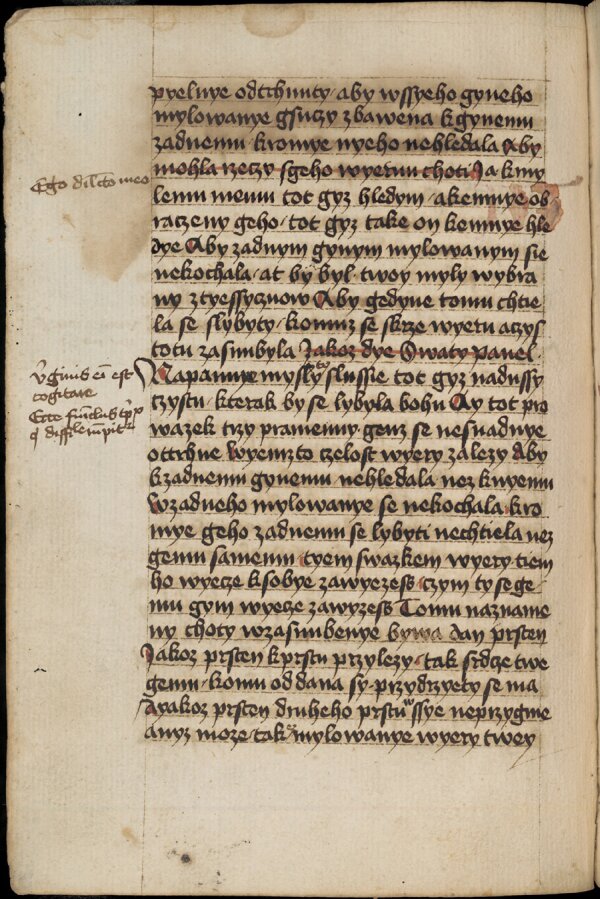 pyeluye odtrhnuty aby wssyeho gyneho
mylowanye gsuczy zbawena kgynemu
zadnemu kromye nyeho nehledala Aby
mohla rzeczy sgeho wyernu choti Ja kmy
Ego dilcto meo
lemu memu tot gyz hledym akemnye ob
raczeny geho tot gyz take on kemnye hle
dye Aby zadnym gynym mylowanym sie
nekochala at by byl twoy myly wybra
ny ztyessycznow Aby gedyne tomu chtie
la se slybyty komuz se skrze wyeru aczys
totu zasnubyla Jakoz dye Swaty pawel
Napannye mysly slussie tot gyz nadussy
czystu kterak by se lybyla bohu Ay tot pro
wazek trzy pramenny genz se nesnadnye
v̄ginis eī est
cogitare
Ecce funiculus tp̄x
q difficle rūpitr
ottrhne Wyemzto czelost wyery zalezy Aby
kzadnemu gynemu nehledala nez knyemu
Wzadneho mylowanye se nekochala kro
mye geho zadnemu se lybyti nechtiela nez
gemu samemu tyem swazkem wyery tiem
ho wyecze ksobye zawyezess czym ty se ge
mu gym wyecze zawyzess Tomu nazname
ny choty wzasnubenye bywa dan prsten
Jakoz prsten kprstu przylezy tak srdcze twe
gemu komu oddana sy przydrzyety se ma
Ayakoz prsten druheho prstu wssye neprzygme
anyz moze tak mylowanye wyery twey